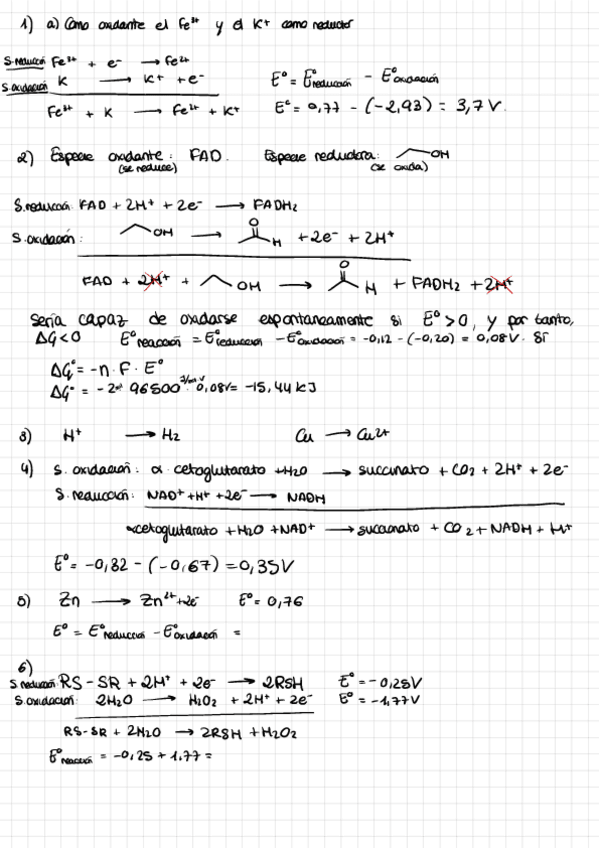 1) a) Como oxidante el Fe³⁺ y el K⁺ como reductor
S. reducción Fe³⁺ + e⁻ → Fe²⁺
S. oxidación K → K⁺ + e⁻ E° = E°reducción - E°oxidación
Fe³⁺ + K → Fe²⁺ + K⁺ E° = 0,77 - (-2,93) = 3,7 V.
2) Especie oxidante: FAD. Especie reductora: OH
(se reduce) (se oxida)
S. reducción: FAD + 2H⁺ + 2e⁻ → FADH₂
S. oxidación: OH → O H + 2e⁻ + 2H⁺
FAD + 2H⁺ + OH → O H + FADH₂ + 2H⁺
Sería capaz de oxidarse espontaneamente si E° > 0, y por tanto,
ΔG < 0 E°reacción = E°reducción - E°oxidación = -0,12 - (-0,20) = 0,08 V. Sí
ΔG° = -n · F · E°
ΔG° = -2 · 96500 · 0,08V = -15,44 kJ
3) H⁺ → H₂ Cu → Cu²⁺
4) S. oxidación: α cetoglutarato + H₂O → succinato + CO₂ + 2H⁺ + 2e⁻
S. reducción: NAD⁺ + H⁺ + 2e⁻ → NADH
αcetoglutarato + H₂O + NAD⁺ → succionato + CO₂ + NADH + H⁺
E° = -0,32 - (-0,67) = 0,35 V
5) Zn → Zn²⁺ + 2e⁻ E° = 0,76
E° = E°reducción - E°oxidación =
6)
S. reducción RS-SR + 2H⁺ + 2e⁻ → 2RSH E° = -0,25 V
S. oxidación: 2H₂O → H₂O₂ + 2H⁺ + 2e⁻ E° = -1,77 V
RS-SR + 2H₂O → 2RSH + H₂O₂
E°reacción = -0,25 + 1,77 =